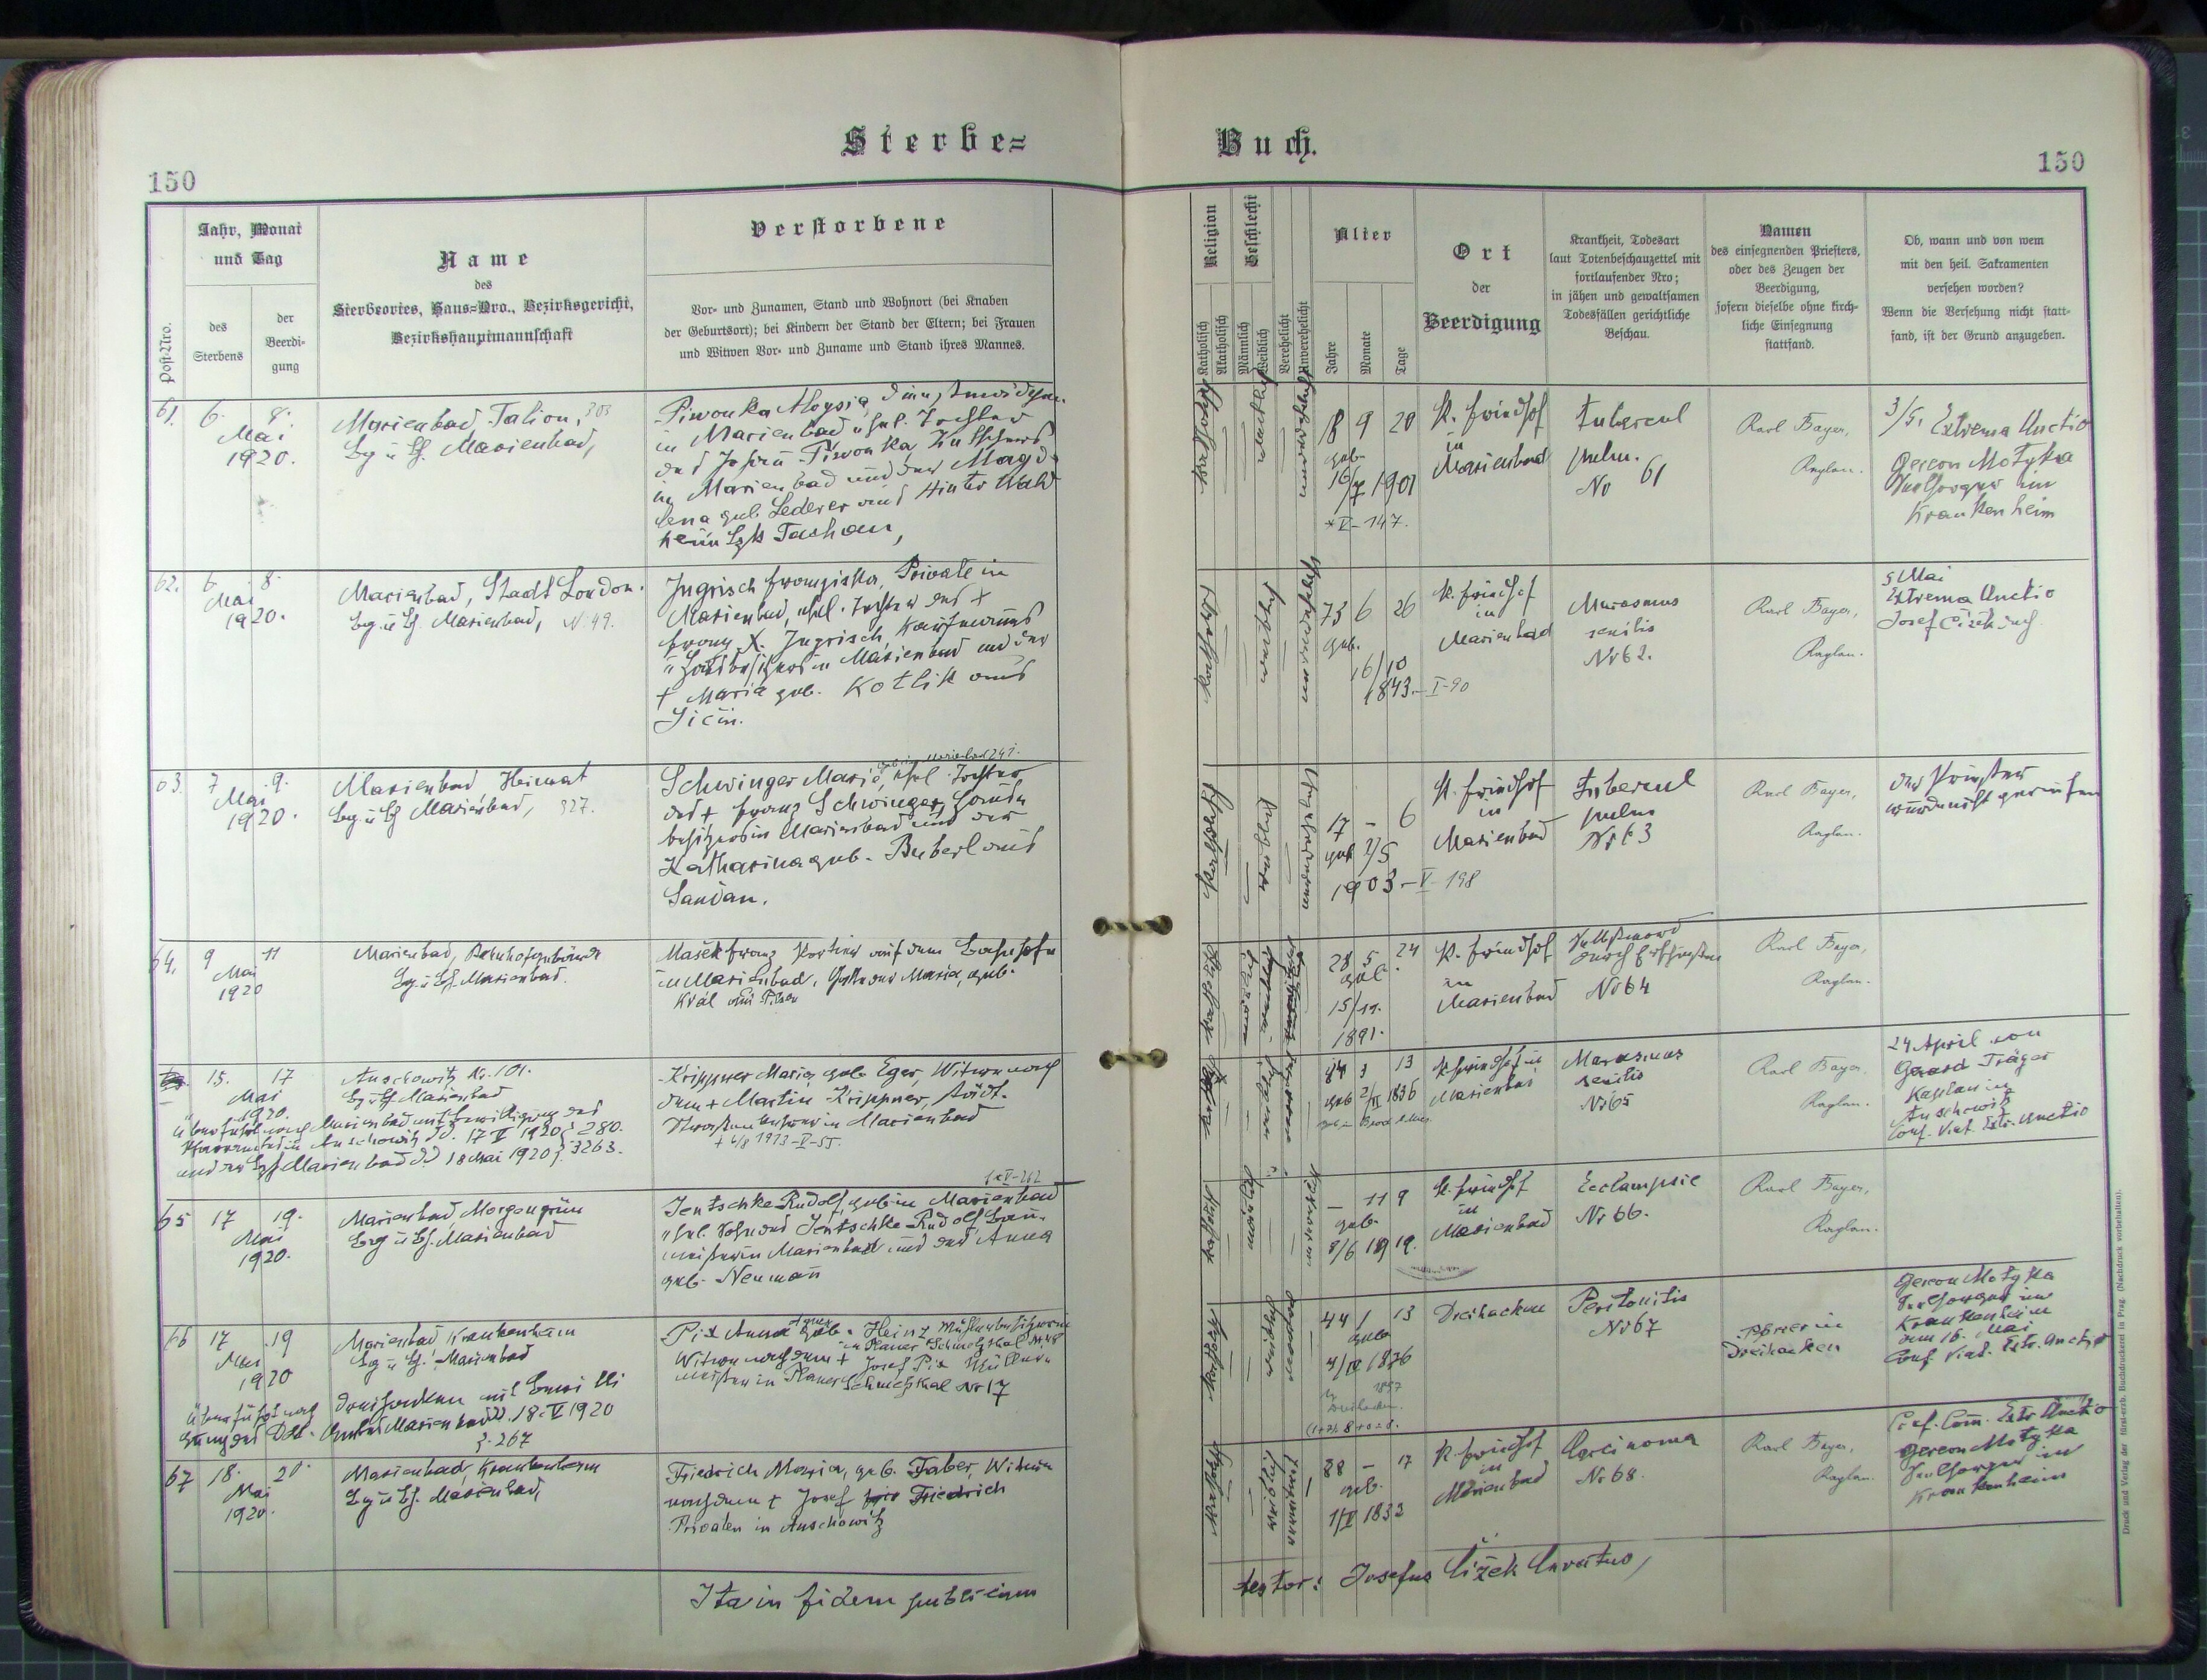 Sterbe=
Buch.
150
150
Post-Nro.
Jahr, Monat
und Tag
des
Sterbens
der
Beerdi-
gung
Name
des
Sterbeortes, Haus=Nro., Bezirksgericht,
Bezirkshauptmannschaft
Verstorbene
Vor- und Zunamen, Stand und Wohnort (bei Knaben
der Geburtsort); bei Kindern der Stand der Eltern; bei Frauen
und Witwen Vor- und Zuname und Stand ihres Mannes.
Religion
Katholisch
Akatholisch
Geschlecht
Männlich
Weiblich
Verehelicht
Unverehelicht
Alter
Jahre
Monate
Tage
Ort
der
Beerdigung
Krankheit, Todesart
laut Totenbeschauzettel mit
fortlaufender Nro;
in jähen und gewaltsamen
Todesfällen gerichtliche
Beschau.
Namen
des einsegnenden Priesters,
oder des Zeugen der
Beerdigung,
sofern dieselbe ohne kirch-
liche Einsegnung
stattfand.
Ob, wann und von wem
mit den heil. Sakramenten
versehen worden?
Wenn die Versehung nicht statt-
fand, ist der Grund anzugeben.
61. 6. 8.
Mai
1920.
Marienbad, Talion, 303
Bg u Bh. Marienbad,
Piwonka Aloysia,
in Marienbad ehel. Tochter
des Josef Piwonka, Kutschers
in Marienbad und der Magda
lena geb. Lederer aus Hinter Wald
heim Bzk Tachau,
katholisch
weiblich
unverehelicht
18 9 20
geb.
16/7 1901
*V-147.
K. Friedhof
in
Marienbad
Tubercul
pulm.
No 61
Karl Bayer,
Kaplan.
3/5. Extrema Unctio
Gereon Motyka
Seelsorger im
Krankenheim
62. 6. 8.
Mai
1920.
Marienbad, Stadt London.
Bg. u Bh. Marienbad, N. 49.
Ingrisch Franziska, Private in
Marienbad, ehel. Tochter des +
Franz X. Ingrisch, Kaufmanns
u Hausbesitzers in Marienbad und der
+ Maria geb. Kotlik aus
Jičin.
katholisch
weiblich
unverehelicht
73 6 26
geb.
16/10
1843.- I-90
K. Friedhof
in
Marienbad
Marasmus
senilis
Nr 62.
Karl Bayer,
Kaplan.
5 Mai
Extrema Unctio
Josef Čížek
63. 7 9.
Mai
1920.
Marienbad Heimat
Bg. u Bh Marienbad, 327.
geb. in Marienbad 241.
Schwinger Maria, ehel. Tochter
des + Franz Schwinger, Haus
besitzers in Marienbad und der
Katharina geb. Buberl aus
Sandau.
katholisch
weiblich
unverehelicht
17 - 6
geb 1/5
1903-V-198
K. Friedhof
in
Marienbad
Tubercul
pulm
Nr 63
Karl Bayer,
Kaplan.
der Priester
wurde nicht gerufen
64. 9 11
Mai
1920
Marienbad, Bahnhofgebäude
Bg. u Bh Marienbad.
Mašek Franz Portier auf dem Bahnhofe
in Marienbad, Gatte der Maria, geb.
Král aus Pilsen
28 5 24
geb.
15/11.
1891.
K. Friedhof
in
Marienbad
Selbstmord
durch Erschießen
Nr 64
Karl Bayer,
Kaplan.
15. 17
Mai
1920.
Auschowitz Nr. 101.
Bg u Bh Marienbad
Überführt nach Marienbad mit Bewilligung des
Pfarramtes in Auschowitz dd. 17 V 1920 Z 280.
und der Bzh Marienbad dd 18 Mai 1920 Z. 3263.
Krippner Maria geb. Eger, Witwe nach
dem + Martin Krippner, städt.
in Marienbad
+ 4/8 1913-V-55.
84 3 13
geb 2/II 1836
K Friedhof in
Marienbad
Marasmus
senilis
Nr 65
Karl Bayer,
Kaplan.
24 April von
Gerard Träger
Kaplan in
Auschowitz
Conf. Viat. Extr. Unctio
65 17 19.
Mai
1920.
Marienbad Morgengrün
Bzg u Bh. Marienbad
V-262
Jentschke Rudolf, geb. in Marienbad
ehel. Sohn des Jentschke Rudolf Bau-
meister in Marienbad und der Anna
geb. Neumann
katholisch
männlich
unverehel.
- 11 9
geb.
8/6 1919.
K. Friedhof
in
Marienbad
Eclampsie
Nr 66.
Karl Bayer,
Kaplan.
66 17 19
Mai
1920
Marienbad Krankenheim
Bg u Bh. Marienbad
Überführt nach Dreihacken mit Bewilli
gung des Marienbad dd. 18. V 1920
Z. 267
Pix Anna geb. Heinz, Mühlenbesitzerin
in Planer Schmelzthal Nr 48
Witwe nach dem + Josef Pix Müller
meister in Planer Schmelzthal Nr 17
44 1 13
geb.
4/IV 1876
Dreihacken
Peritonitis
Nr 67
Pfarrer in
Dreihacken
Gereon Motyka
Seelsorger im
Krankenheim
am 16. Mai
Conf. Viat. Extr. Unctio
67 18. 20.
Mai
1920.
Marienbad, Krankenheim
Bg u Bh. Marienbad,
Friedrich Maria, geb. Faber, Witwe
nach dem + Josef Friedrich
Privaten in Auschowitz
katholisch
weiblich
verwitwet
88 - 17
geb.
1/V 1832
K. Friedhof
in
Marienbad
Carcinoma
Nr 68.
Karl Bayer,
Kaplan.
Conf. Com. Extr. Unctio
Gereon Motyka
Seelsorger im
Krankenheim
Ita in fidem publicam
testor: Josefus Čížek Curatus,
Druck und Verlag der fürst-erzb. Buchdruckerei in Prag. (Nachdruck vorbehalten).